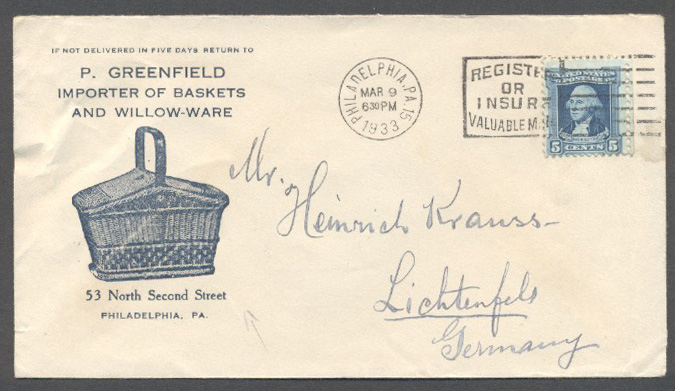 IF NOT DELIVERED IN FIVE DAYS RETURN TO
P. GREENFIELD
IMPORTER OF BASKETS
AND WILLOW-WARE
53 North Second Street
PHILADELPHIA, PA.
PHILADELPHIA, PA. 15
MAR 9
630 PM
1933
REGISTE
OR
INSUR
VALUABLE M
UNITED STATES
POSTAGE
5 CENTS 5
Mr. Heinrich Krauss-
Lichtenfels
Germany